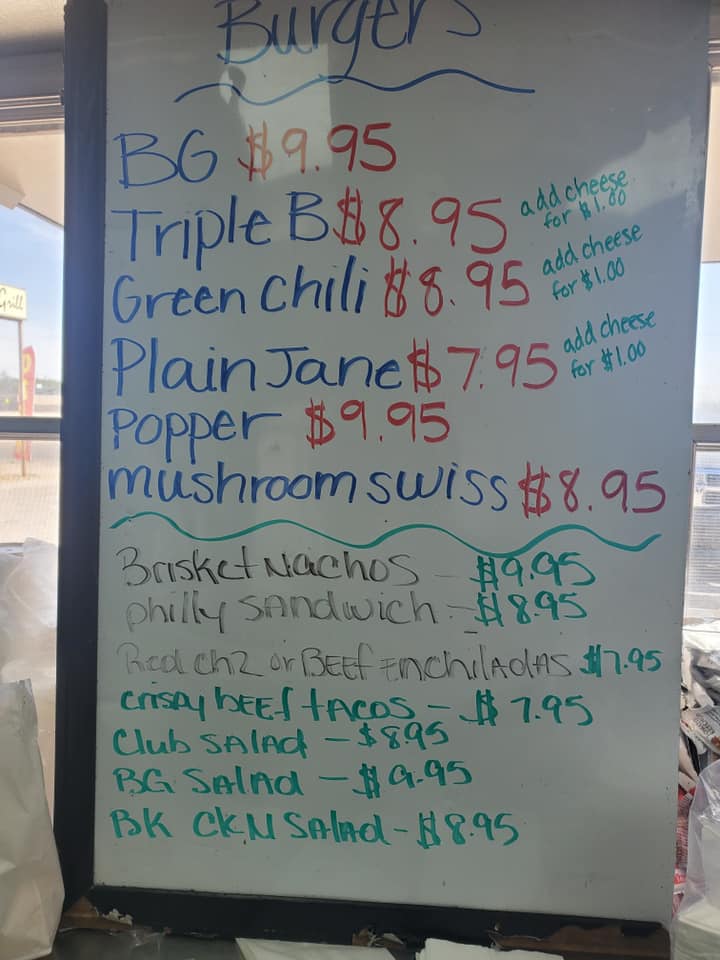 Burgers
BG $9.95
Triple B $8.95 add cheese for $1.00
Green Chili $8.95 add cheese for $1.00
Plain Jane $7.95 add cheese for $1.00
Popper $9.95
mushroom swiss $8.95
Brisket Nachos - $9.95
philly SANdwich - $8.95
Red chz or BEEf ENchilAdAS $7.95
crispy bEEf tACOS - $7.95
Club SAlAd - $8.95
BG SAlAd - $9.95
BK CKN SAlAd - $8.95
Grill